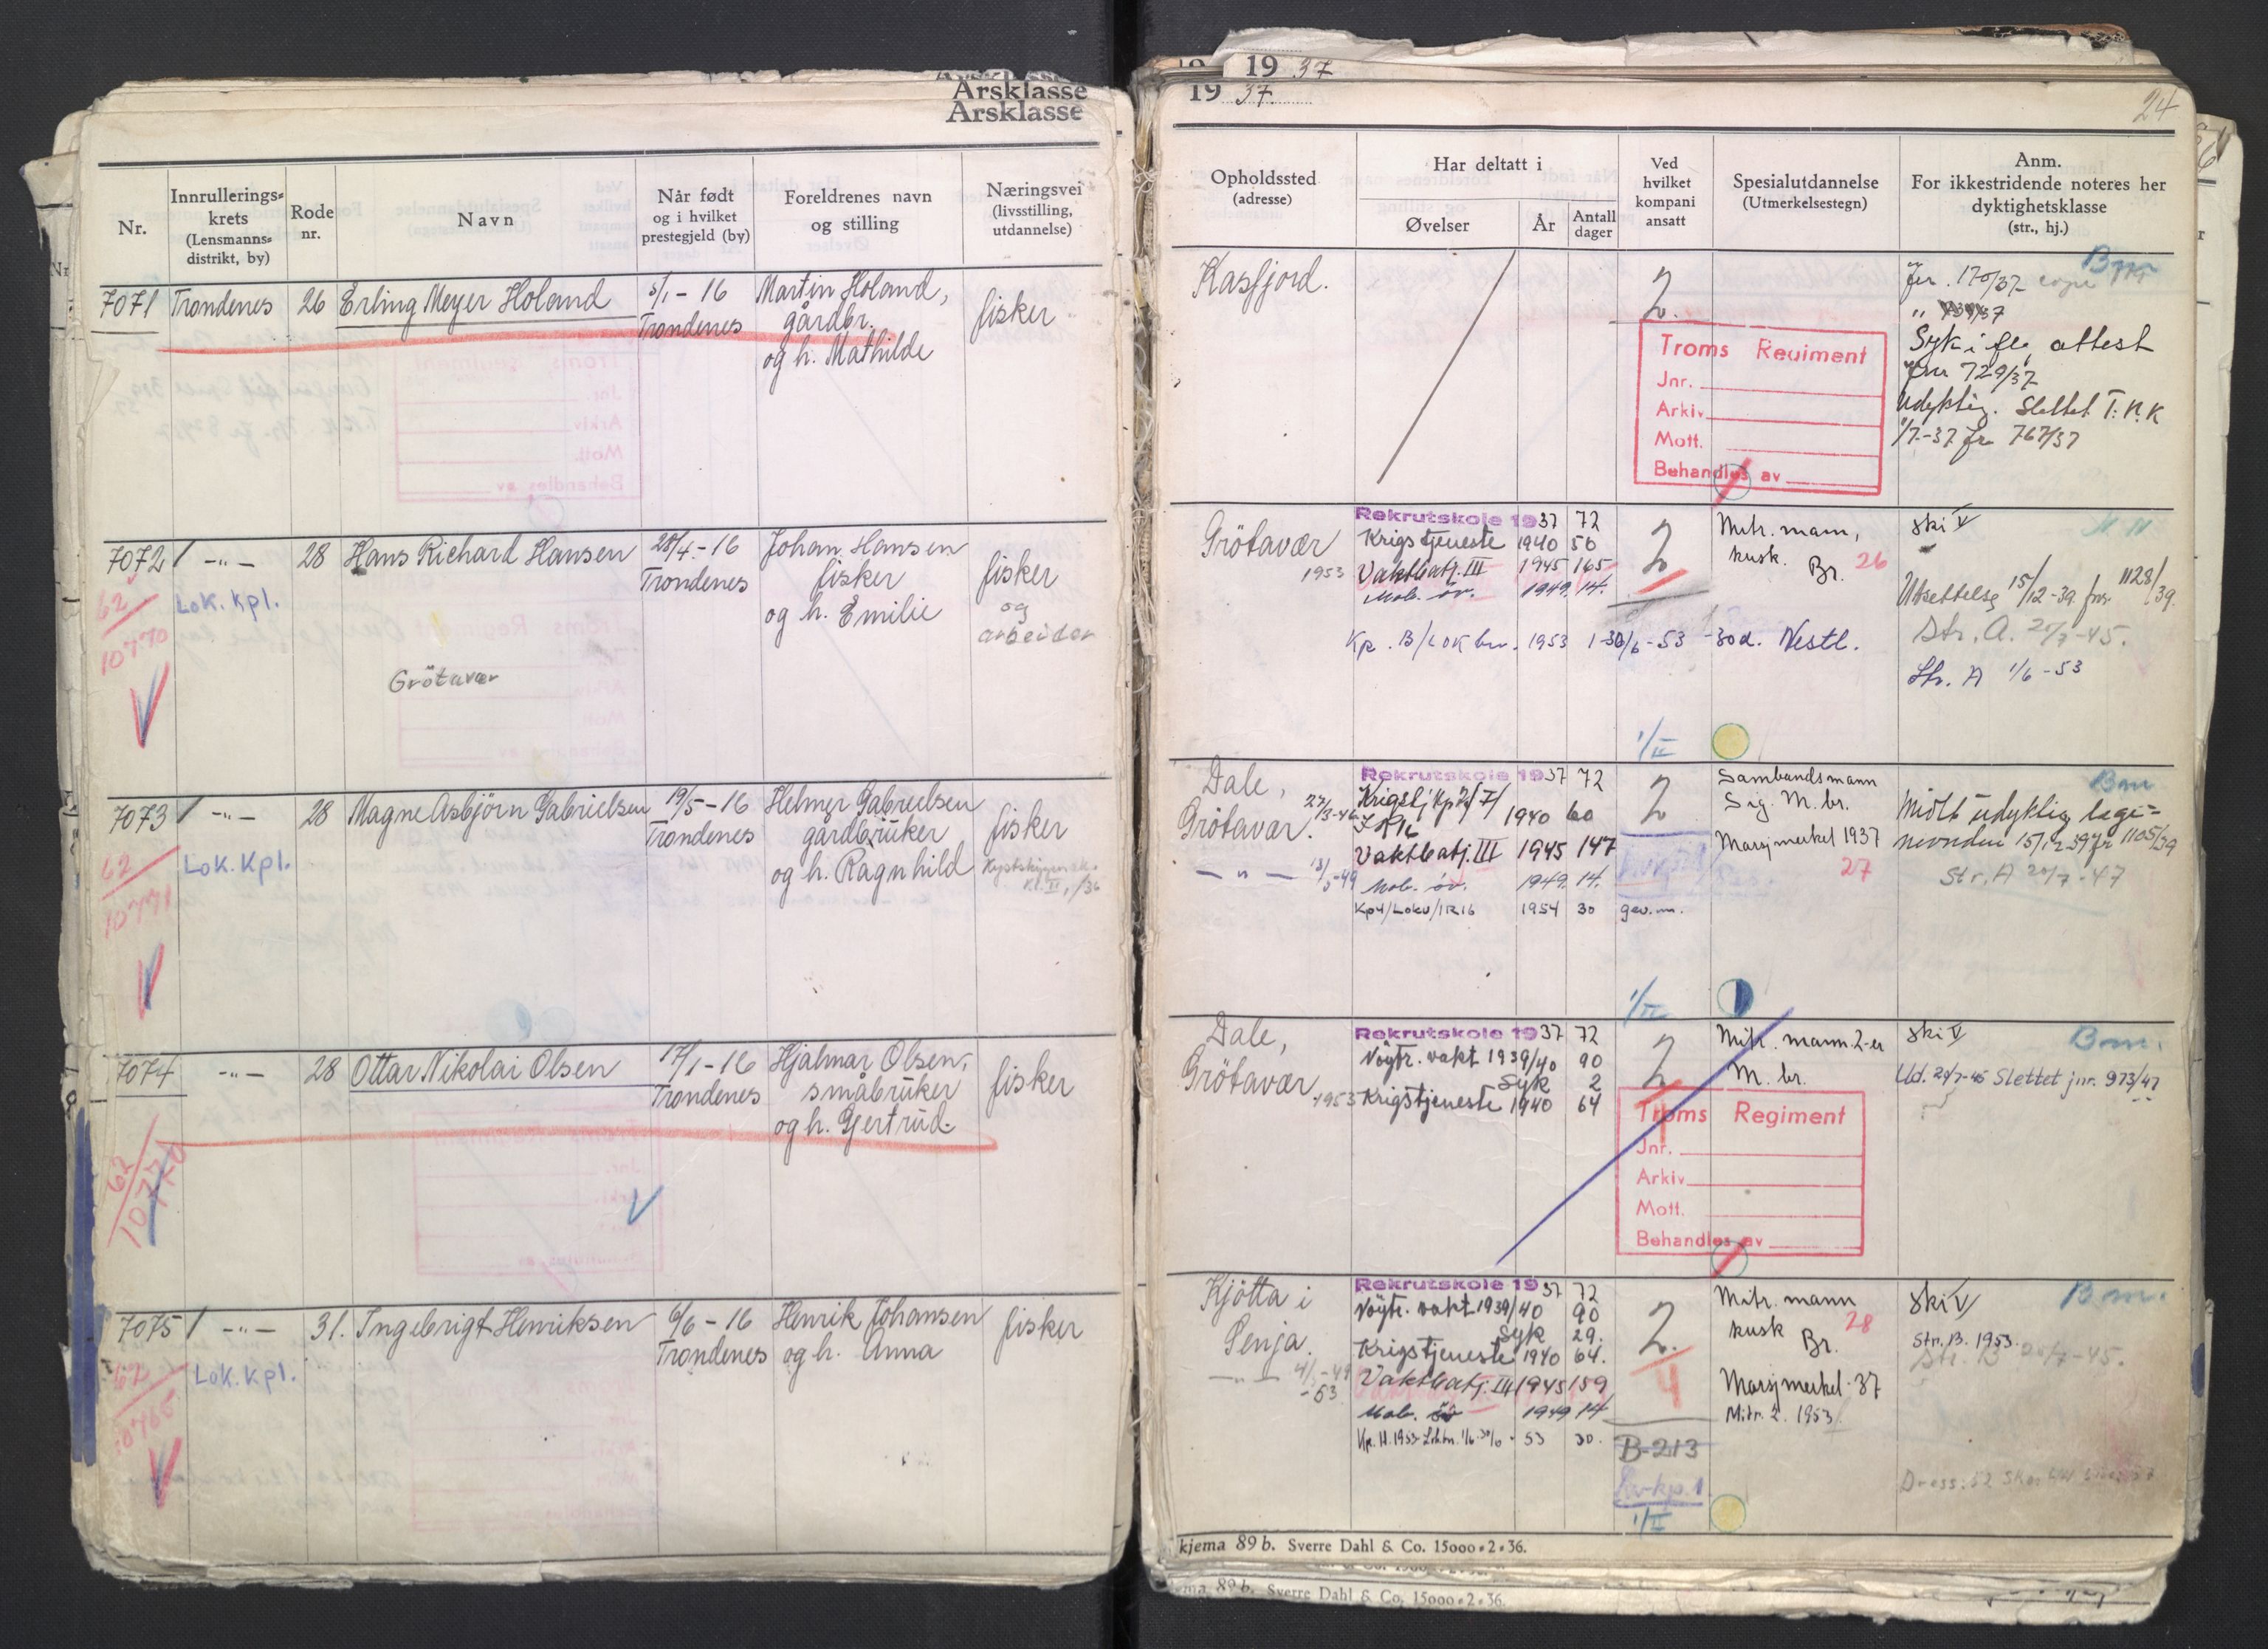 Årsklasse
Årsklasse
19 37
19 37.
24
Nr.
Innrullerings-
krets
(Lensmanns-
distrikt, by)
Rode
nr.
Navn
Når født
og i hvilket
prestegjeld (by)
Foreldrenes navn
og stilling
Næringsvei
(livsstilling,
utdannelse)
Opholdssted
(adresse)
Har deltatt i
Øvelser
År
Antall
dager
Ved
hvilket
kompani
ansatt
Spesialutdannelse
(Utmerkelsestegn)
Anm.
For ikkestridende noteres her
dyktighetsklasse
(str., hj.)
7071 Trondenes 26 Erling Meyer Holand
5/1 - 16
Trondenes
Martin Holand,
gårdbr.
og h. Mathilde
fisker
Kasfjord.
2.
Jnr. 170/37
Syk i flg. attest
jnr 729/37
Udyktig. Slettet T.R.K
1/7-37 jnr 767/37
Troms Regiment
Jnr.
Arkiv
Mott.
Behandles av
7072 / -"- 28 Hans Richard Hansen
62
10770
Lok. Kpl.
Grötavær
28/4 - 16
Trondenes
Johan Hansen
fisker
og h. Emilie
fisker
og
arbeider
Grötavær
1953
Rekrutskole 1937 72
Krigstjeneste 1940 50
Vaktbatj. III 1945 165
Mob. öv. 1949 14.
Kp. B/Lok bn. 1953 1-30/6-53 30d. Nestl.
2
1/II
Mitr. mann,
kusk. Br. 26
ski V
Utsettelse 15/12-39 jnr. 1128/39.
Str. A. 20/7-45.
Str. A 1/6-53
7073 / -"- 28 Magne Asbjörn Gabrielsen
62
10771
Lok. Kpl.
19/5 - 16
Trondenes
Helmer Gabrielsen
gårdbruker
og h. Ragnhild
fisker
Dale,
Grötavær.
-"-
Rekrutskole 1937 72
1940 60
Vaktbatj. III 1945 147
Mob. öv. 1949 14.
Kp4/Lokv/IR16 1954 30 gev.m.
2
1/II
Sambandsmann
Sig. M. br.
Marsjmerket 1937
27
Bm
Midlt udyktig lege=
nevnden 15/12 39 jnr 1105/39
Str. A 20/7-47
7074 -"- 28 Ottar Nikolai Olsen
62
17/1 - 16
Trondenes
Hjalmar Olsen,
småbruker
og h. Gjertrud.
fisker
Dale,
Grötavær
1953
Rekrutskole 1937 72
Nöytr. vakt 1939/40 90
Syk 2
Krigstjeneste 1940 64
2
4
Mitr. mann 2-er
M. br.
ski V
Bm.
Ud. 20/7-45 Slettet jnr. 973/47
Troms Regiment
Jnr.
Arkiv
Mott.
Behandles av
7075 / -"- 31. Ingebrigt Henriksen
62
10765
Lok. Kpl.
6/6 - 16
Trondenes
Henrik Johansen
og h. Anna
fisker
Kjötta i
Senja.
-"-
-53
Rekrutskole 1937 72
Nöytr. vakt 1939/40 90
Syk 29.
Krigstjeneste 1940 64.
Vaktbatj. III 1945 159
Mob. öv 1949 14
53 30.
2.
4
B-213
1/II
Mitr. mann
kusk Br. 28
Marsjmerket 37
Mitr. 2. 1953
ski V
Bm.
Str. B. 1953.
Str. B 20/7-45.
kjema 89 b. Sverre Dahl & Co. 15000-2-36.
89 b. Sverre Dahl & Co. 15000-2-36.